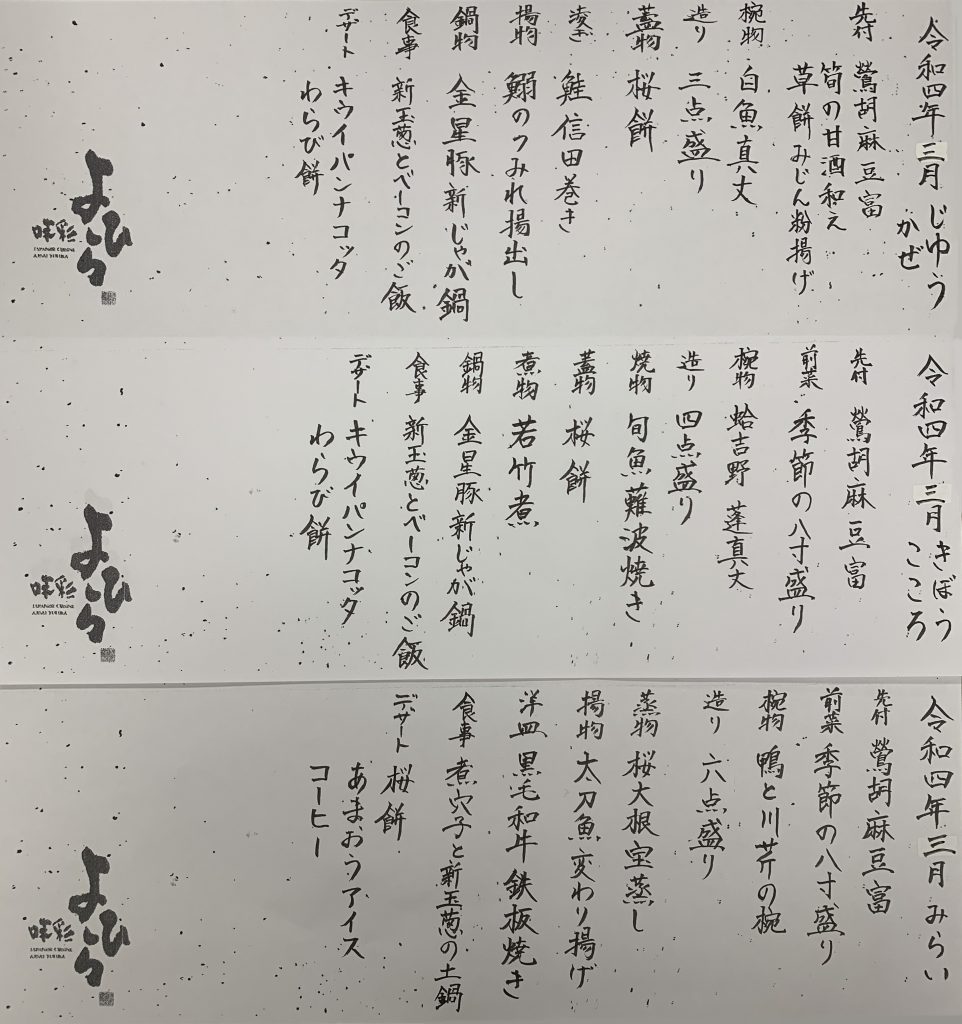 令和四年三月 じゆう
かぜ
先付 鶯胡麻豆富
筍の甘酒和え
草餅みじん粉揚げ
椀物 白魚真丈
造り 三点盛り
蓋物 桜餅
凌ぎ 鮭信田巻き
揚物 鰯のつみれ揚出し
鍋物 金星豚新じゃが鍋
食事 新玉葱とベーコンのご飯
デザート キウイパンナコッタ
わらび餅
よひら
味彩和
令和四年三月 きぼう
こころ
先付 鶯胡麻豆富
前菜 季節の八寸盛り
椀物 蛤吉野 蓬真丈
造り 四点盛り
焼物 旬魚難波焼き
蓋物 桜餅
煮物 若竹煮
鍋物 金星豚新じゃが鍋
食事 新玉葱とベーコンのご飯
デザート キウイパンナコッタ
わらび餅
よひら
令和四年三月 みらい
先付 鶯胡麻豆富
前菜 季節の八寸盛り
椀物 鴨と川芹の椀
造り 六点盛り
蒸物 桜大根宝蒸し
揚物 太刀魚変わり揚げ
洋皿 黒毛和牛鉄板焼き
食事 煮穴子と新玉葱の土鍋
デザート 桜餅
あまおうアイス
コーヒー
よひら